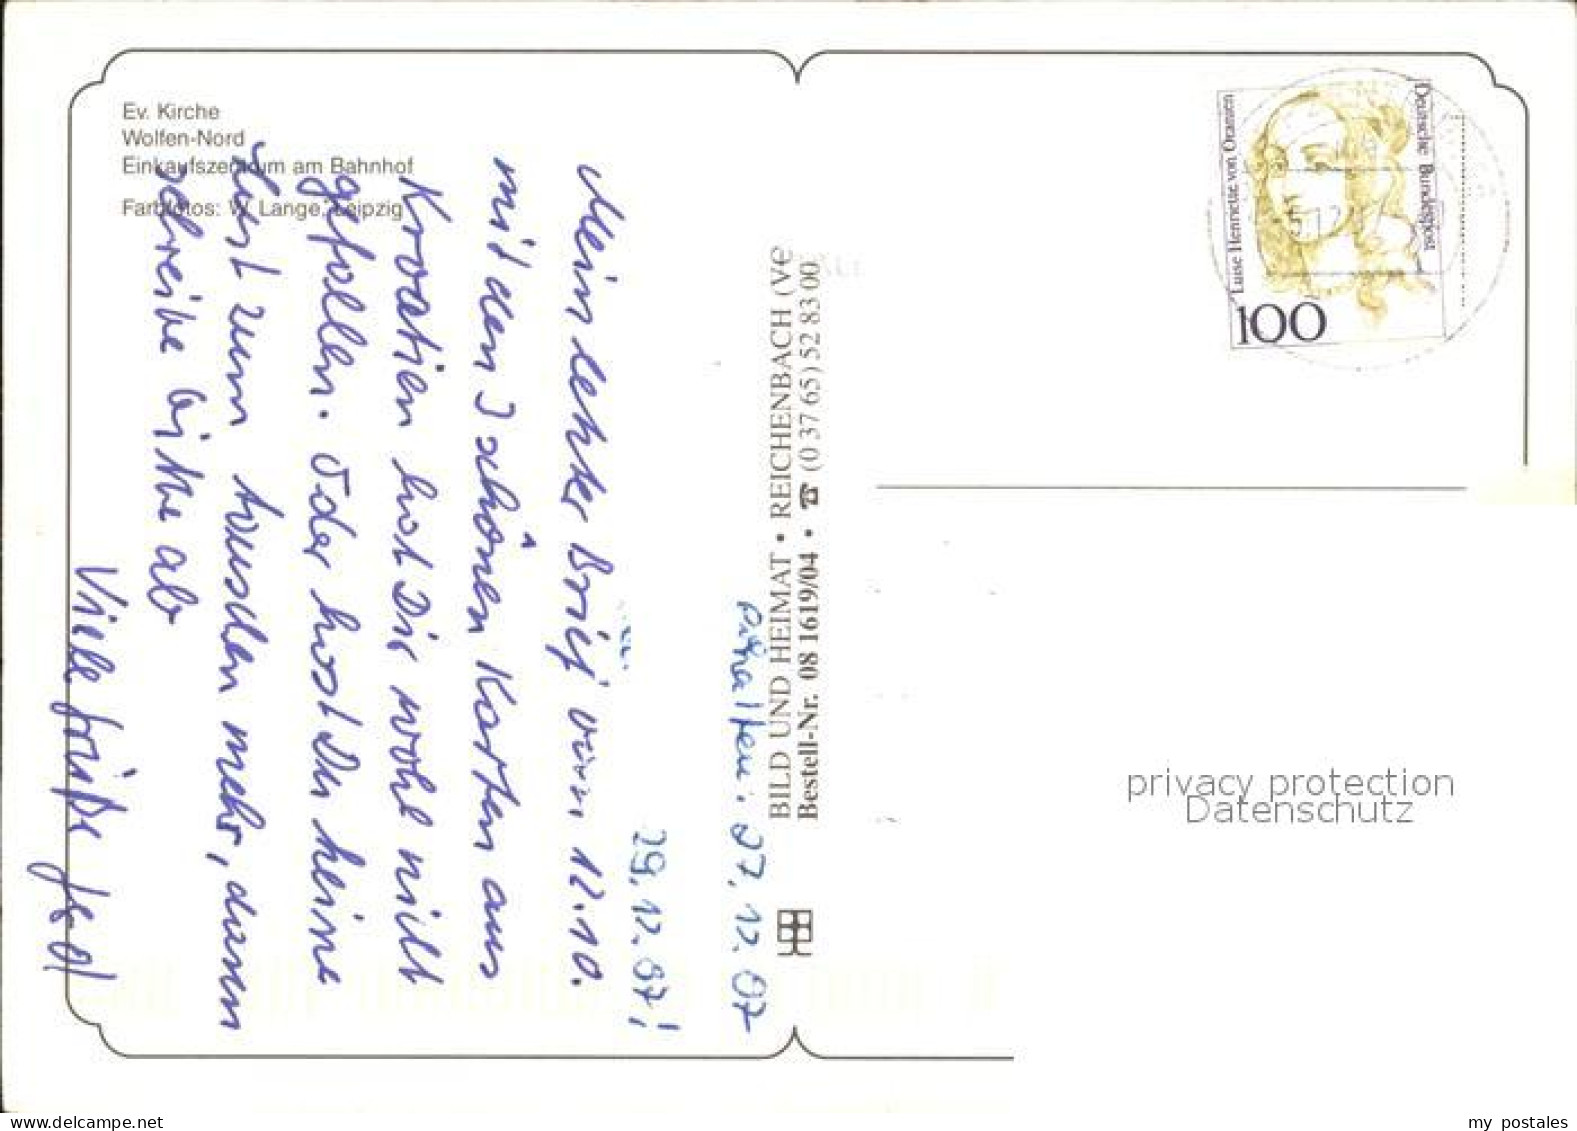 Ev. Kirche
Wolfen-Nord
Einkaufszentrum am Bahnhof
Farbfotos: W. Lange, Leipzig
Mein letzter Brief vom 12.10.
mit den 3 schönen Karten aus
Kroatien hat Dir wohl nicht
gefallen. Oder hast Du keine
Lust zum tauschen mehr, dann
schreibe bitte ab
Viele Grüße
29.12.97!
erhalten: 27.12.97
BILD UND HEIMAT • REICHENBACH (Ve
Bestell-Nr. 08 1619/04 • ☎ (0 37 65) 52 83 00
Luise Henriette von Oranien
Deutsche Bundespost
100
privacy protection
Datenschutz
my postales